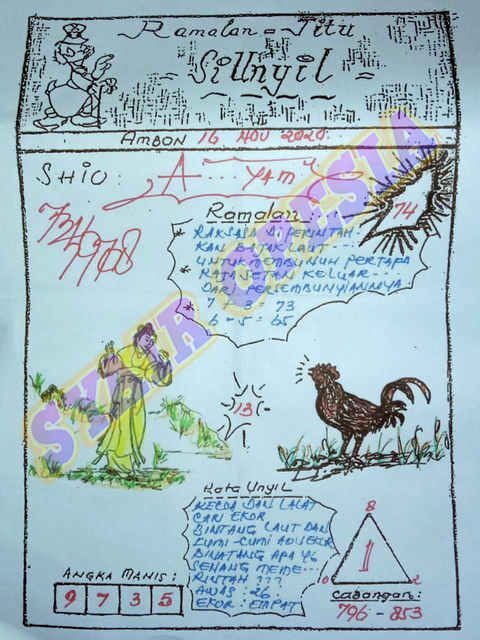 Ramalan = Jitu
SiUnyil
AMBON 16 NOV 2020
SHIO: A... YAM
74
Ramalan:
* RAKSASA DI PERINTAH
KAN BAJAK LAUT
UNTUK MEMBUNUH PERTAPA
* RAJA SETAN KELUAR
DARI PERSEMBUNYIANNYA
* 7 + 3 = 73
6 - 5 = 65
13
Kata Unyil
KECOA DAN LALAT
CARI EKOR
BINTANG LAUT DAN
CUMI-CUMI ADU EKOR
BINATANG APA YG
SENANG MEME...
RINTAH ???
AWAS : 26.
EKOR : EMPAT
ANGKA MANIS:
9 7 3 5
8
1
0 2
Cabangan:
796 - 853
SYAIR